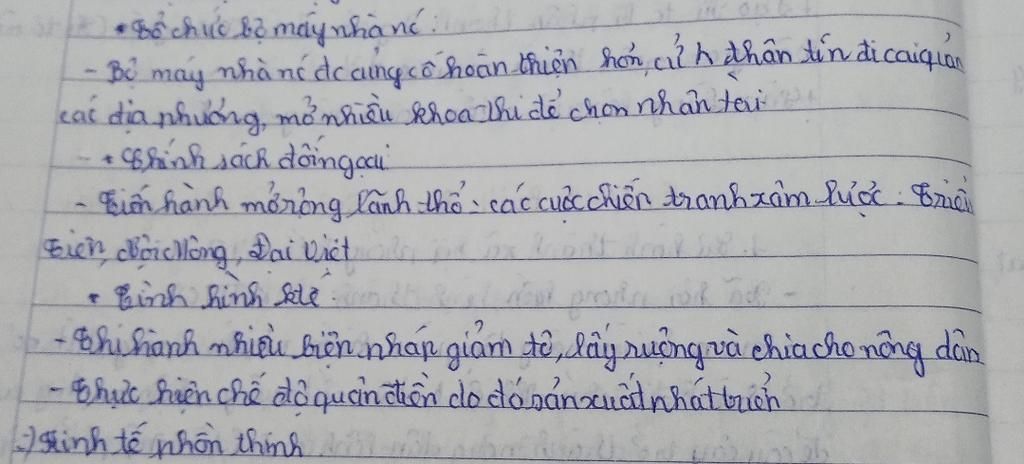 • Tổ chức bộ máy nhà nc.
- Bộ máy nhà nc dc củng cố hoàn thiện hơn, cử h thân tín đi cai quản
các địa phương, mở nhiều khoa thi để chọn nhân tài
- • Chính sách đối ngoại
- Tiến hành mở rộng lãnh thổ: các cuộc chiến tranh xâm lược: Triều
Tiên, Nội Mông, Đại Việt
• Tình hình ktế:
- Thi hành nhiều biện pháp giảm tô, lấy ruộng và chia cho nông dân
- Thực hiện chế độ quân điền do đó sản xuất phát triển
=) Kinh tế phồn thịnh